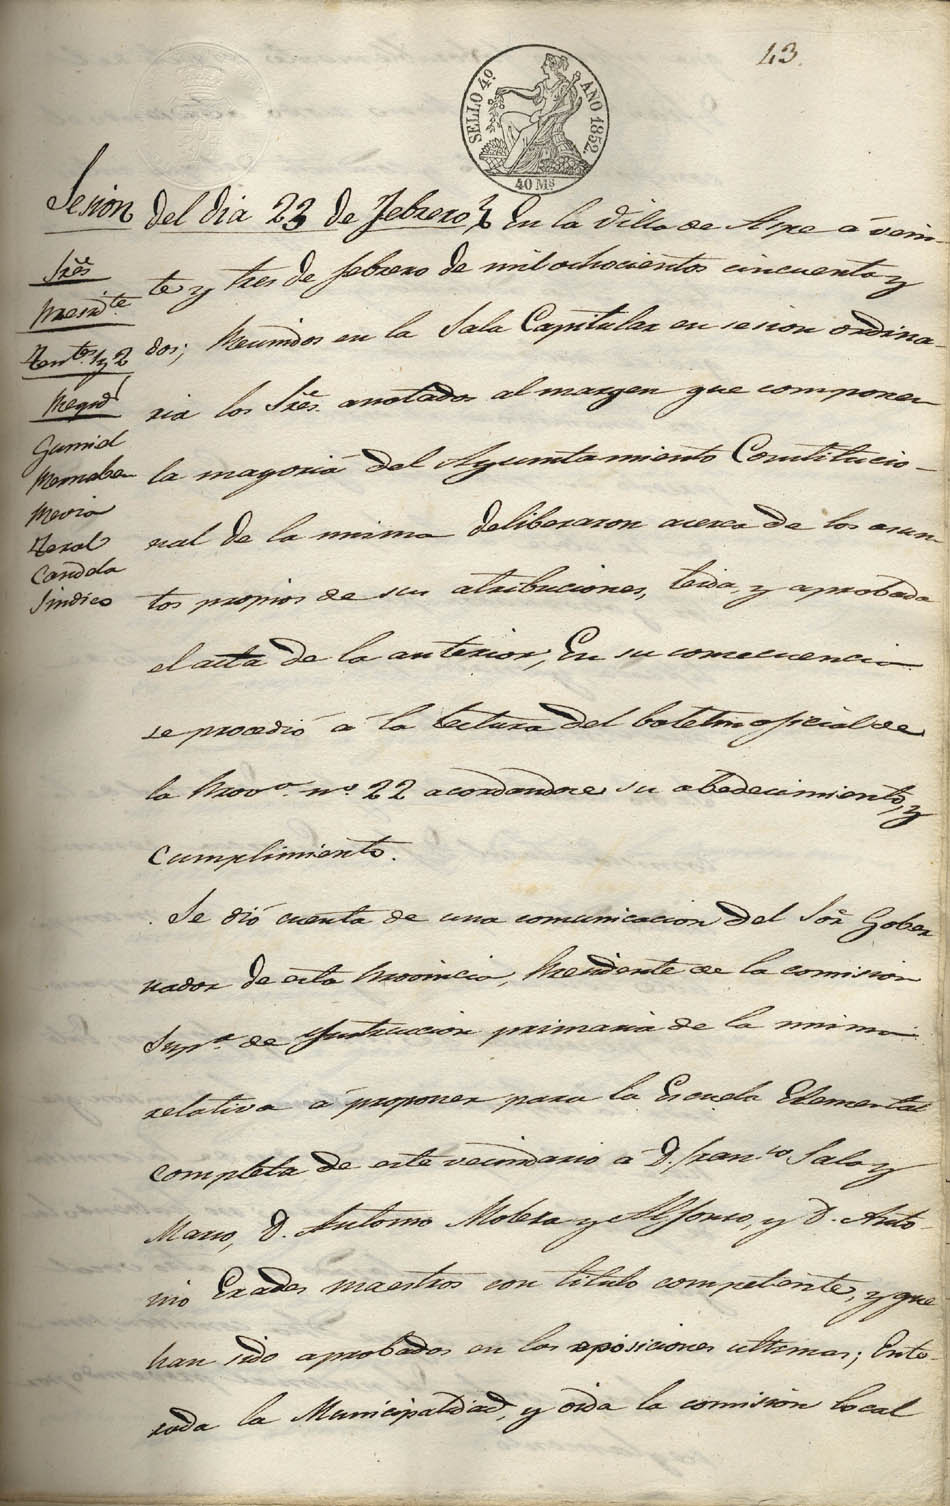 43.
SELLO 4º. AÑO 1852.
40 Ms
Sesion del dia 23 de Febrero } En la Villa de Aspe á vein-
te y tres de febrero de mil ochocientos cincuenta y
dos; Reunidos en la Sala Capitular en sesion ordina-
ria los Sres. anotados al margen que componen
la mayoria del Ayuntamiento Constitucio-
nal de la misma deliberaron acerca de los asun
tos propios de sus atribuciones, leida, y aprobada
el acta de la anterior, En su consecuencia
se procedió á la lectura del boletin oficial de
la Provª. nº 22 acordandose su obedecimiento, y
cumplimiento.
Se dió cuenta de una comunicacion del Sor. Gober
nador de esta Provincia, Presidente de la comision
Supª. de Instruccion primaria de la misma
relativa á proponer para la Escuela Elemental
completa de este vecindario á D. Franco Sala y
D. Antonio y Alfonso, y D. Anto-
nio maestros con titulo competente, y que
han sido aprobados en las oposiciones ultimas; Ente-
rada la Municipalidad, y oida la comision local
Sres
Presidte.
Tentes. 1 y 2
Regid
Gumiel
Mira
Teral
Candela
Sindico